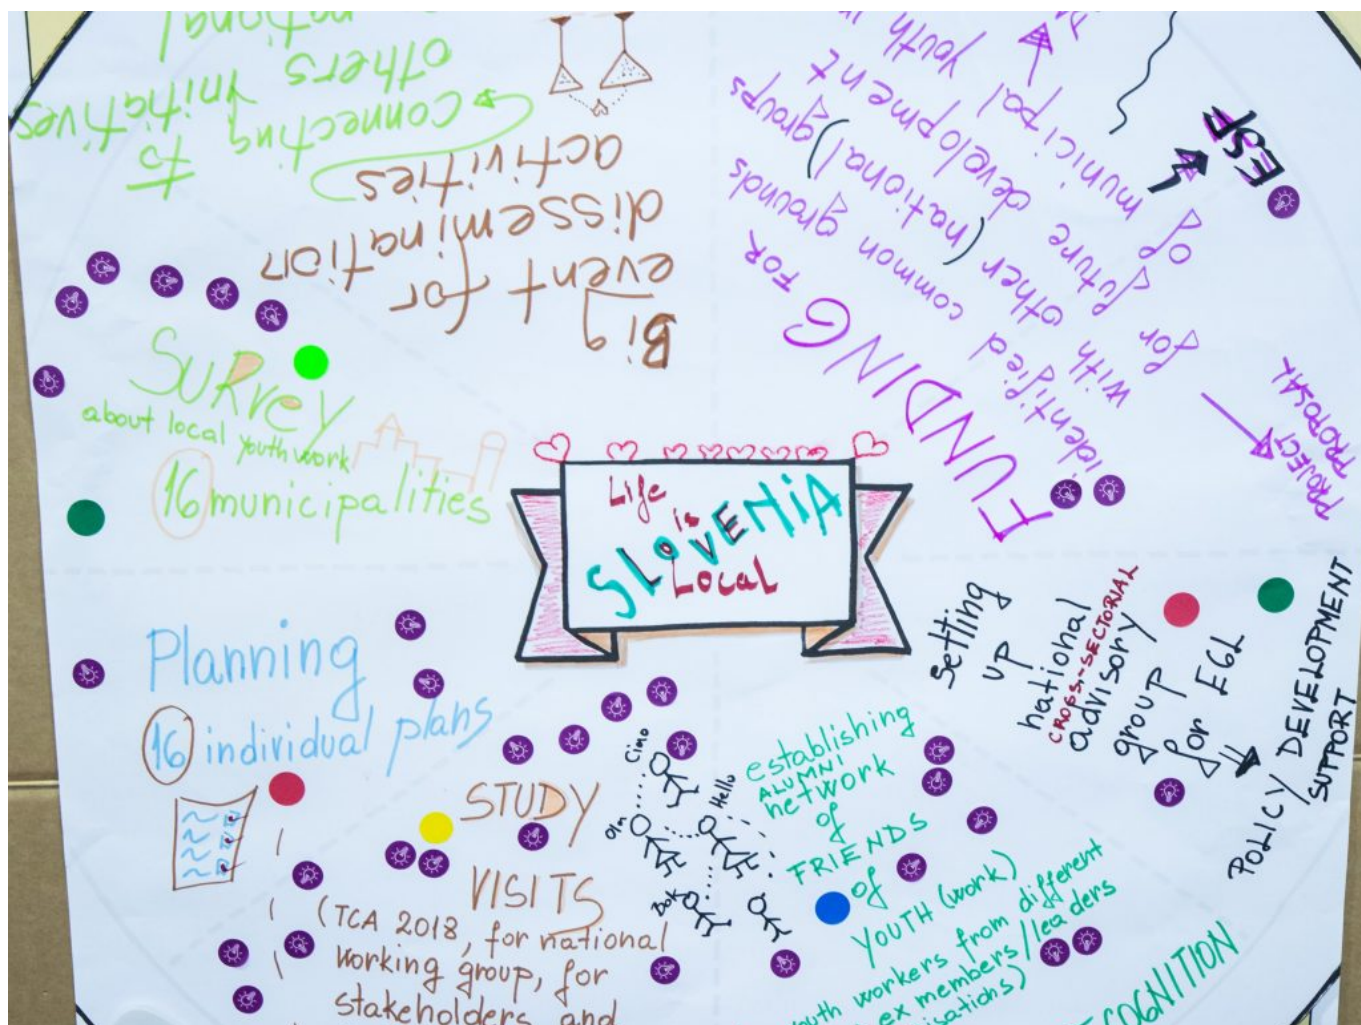 Life
is
SLOVENIA
LOCAL
SURVEY
about local youth work
16 municipalities
Planning
16 individual plans
STUDY
VISITS
(TCA 2018, for national
working group, for
stakeholders, and
Ciao
Hello
establishing
ALUMNI
network
of
FRIENDS
of
YOUTH (work)
youth workers from different
ex members/leaders
RECOGNITION
Setting
up
national
CROSS-SECTORIAL
advisory
group
for EGL
POLICY/DEVELOPMENT
SUPPORT
FUNDING FOR
identified common grounds
with other (national) groups
for future development
of municipal youth
ESF
PROJECT
PROPOSAL
Big
event for
dissemination
activities
connecting to
others initiatives